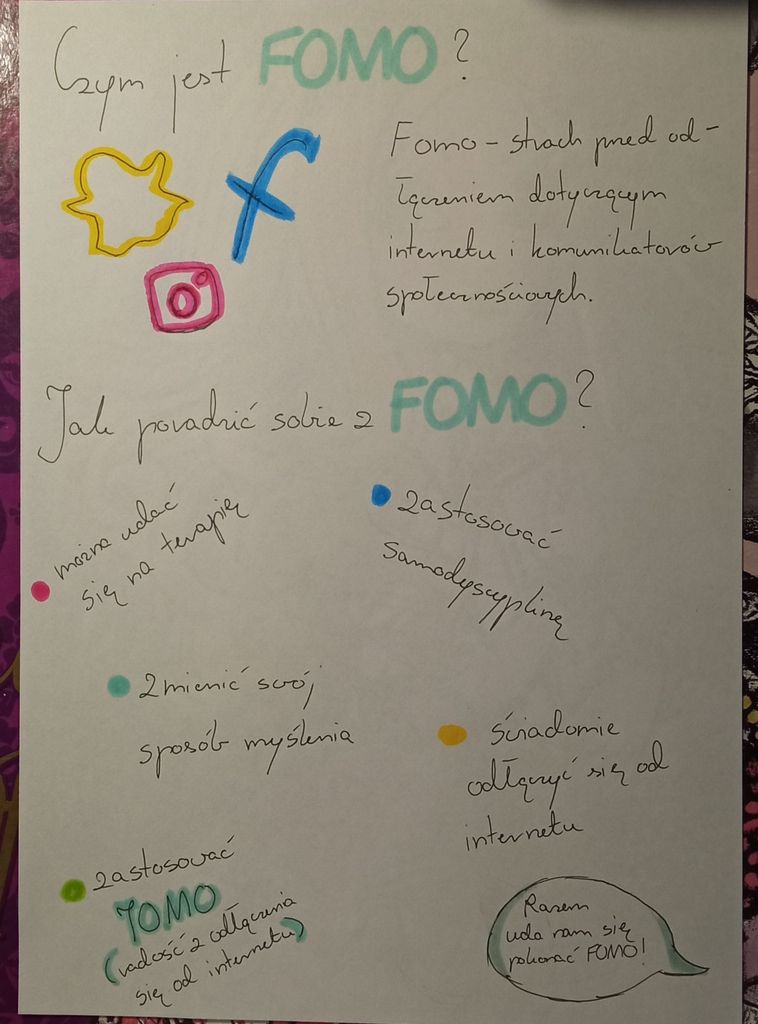 Czym jest FOMO?
Fomo - strach przed od-
łączeniem dotyczącym
internetu i komunikatorów
społecznościowych.
Jak poradzić sobie z FOMO?
można udać
się na terapię
zastosować
samodyscyplinę
zmienić swój
sposób myślenia
świadomie
odłączyć się od
internetu
zastosować
JOMO
(radość z odłączenia
się od internetu)
Razem
uda nam się
pokonać FOMO!